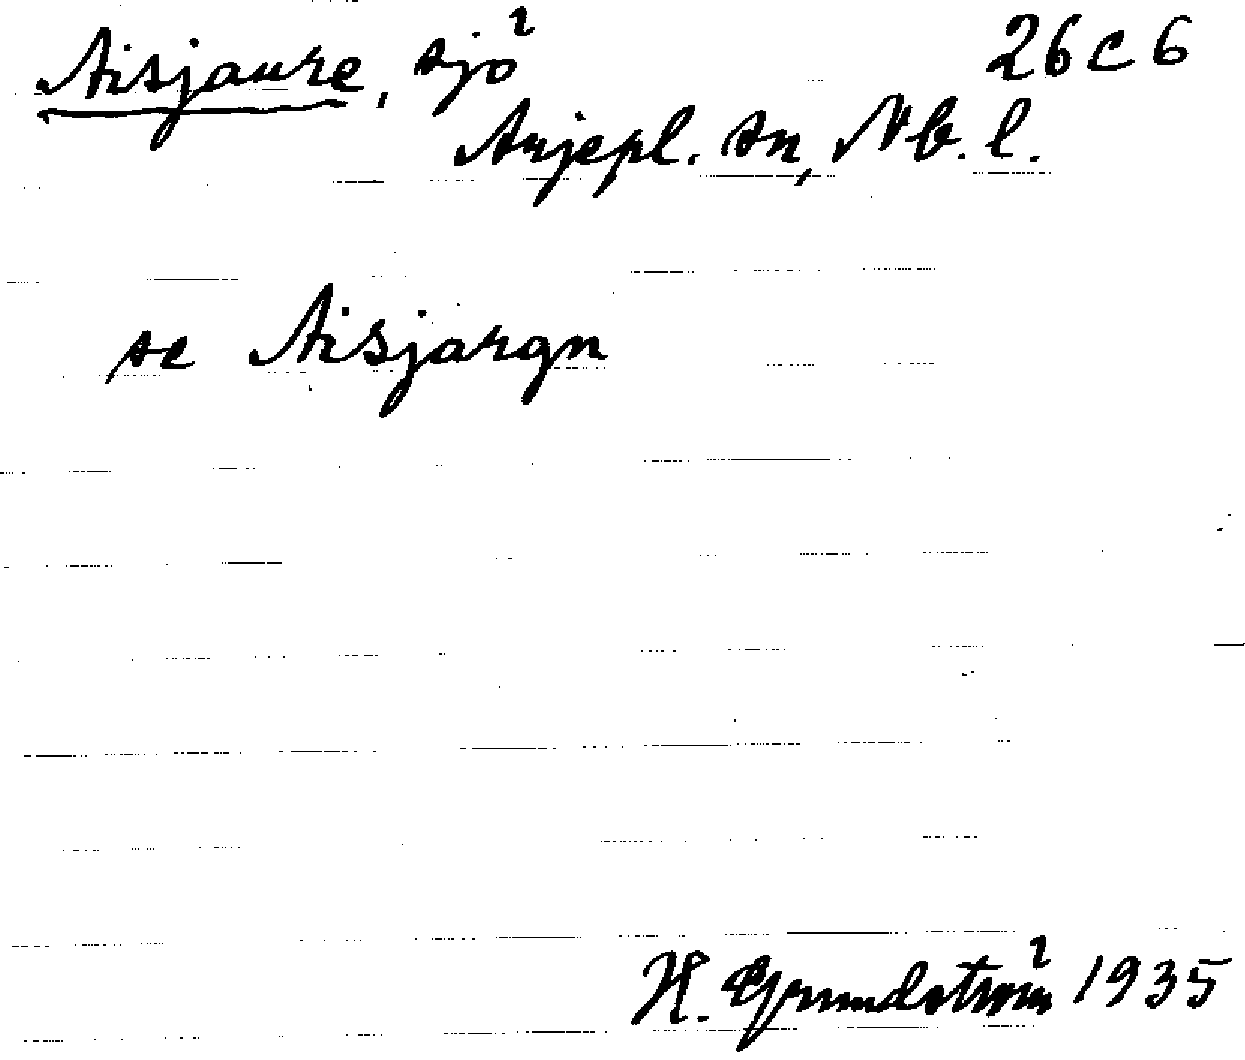 Aisjaure, sjö 26 C 6
Arjepl. sn, Nb. l.
se Aisjargn
H. Grundström 1935